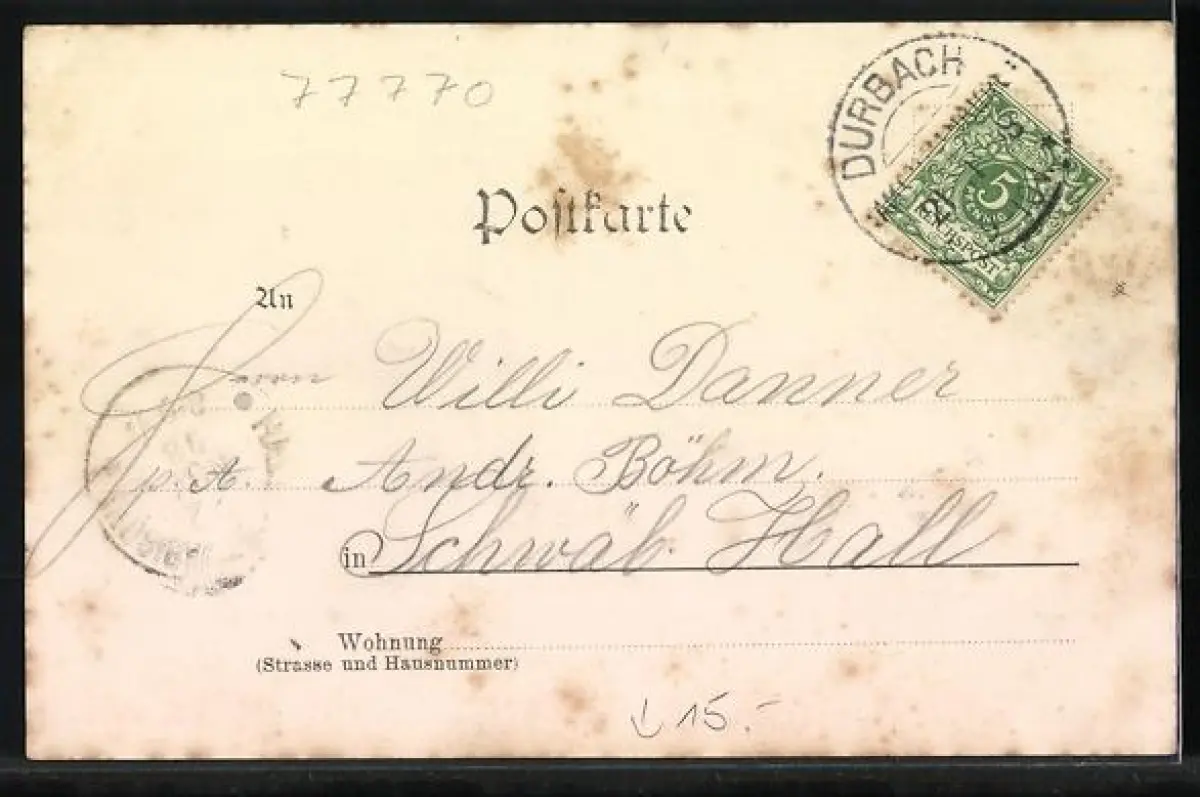 77770
DURBACH
5
PFENNIG
REICHSPOST
Postkarte
An
Herrn Willi Danner
p. A. Andr. Böhm.
in Schwäb. Hall
Wohnung
(Strasse und Hausnummer)
15.-